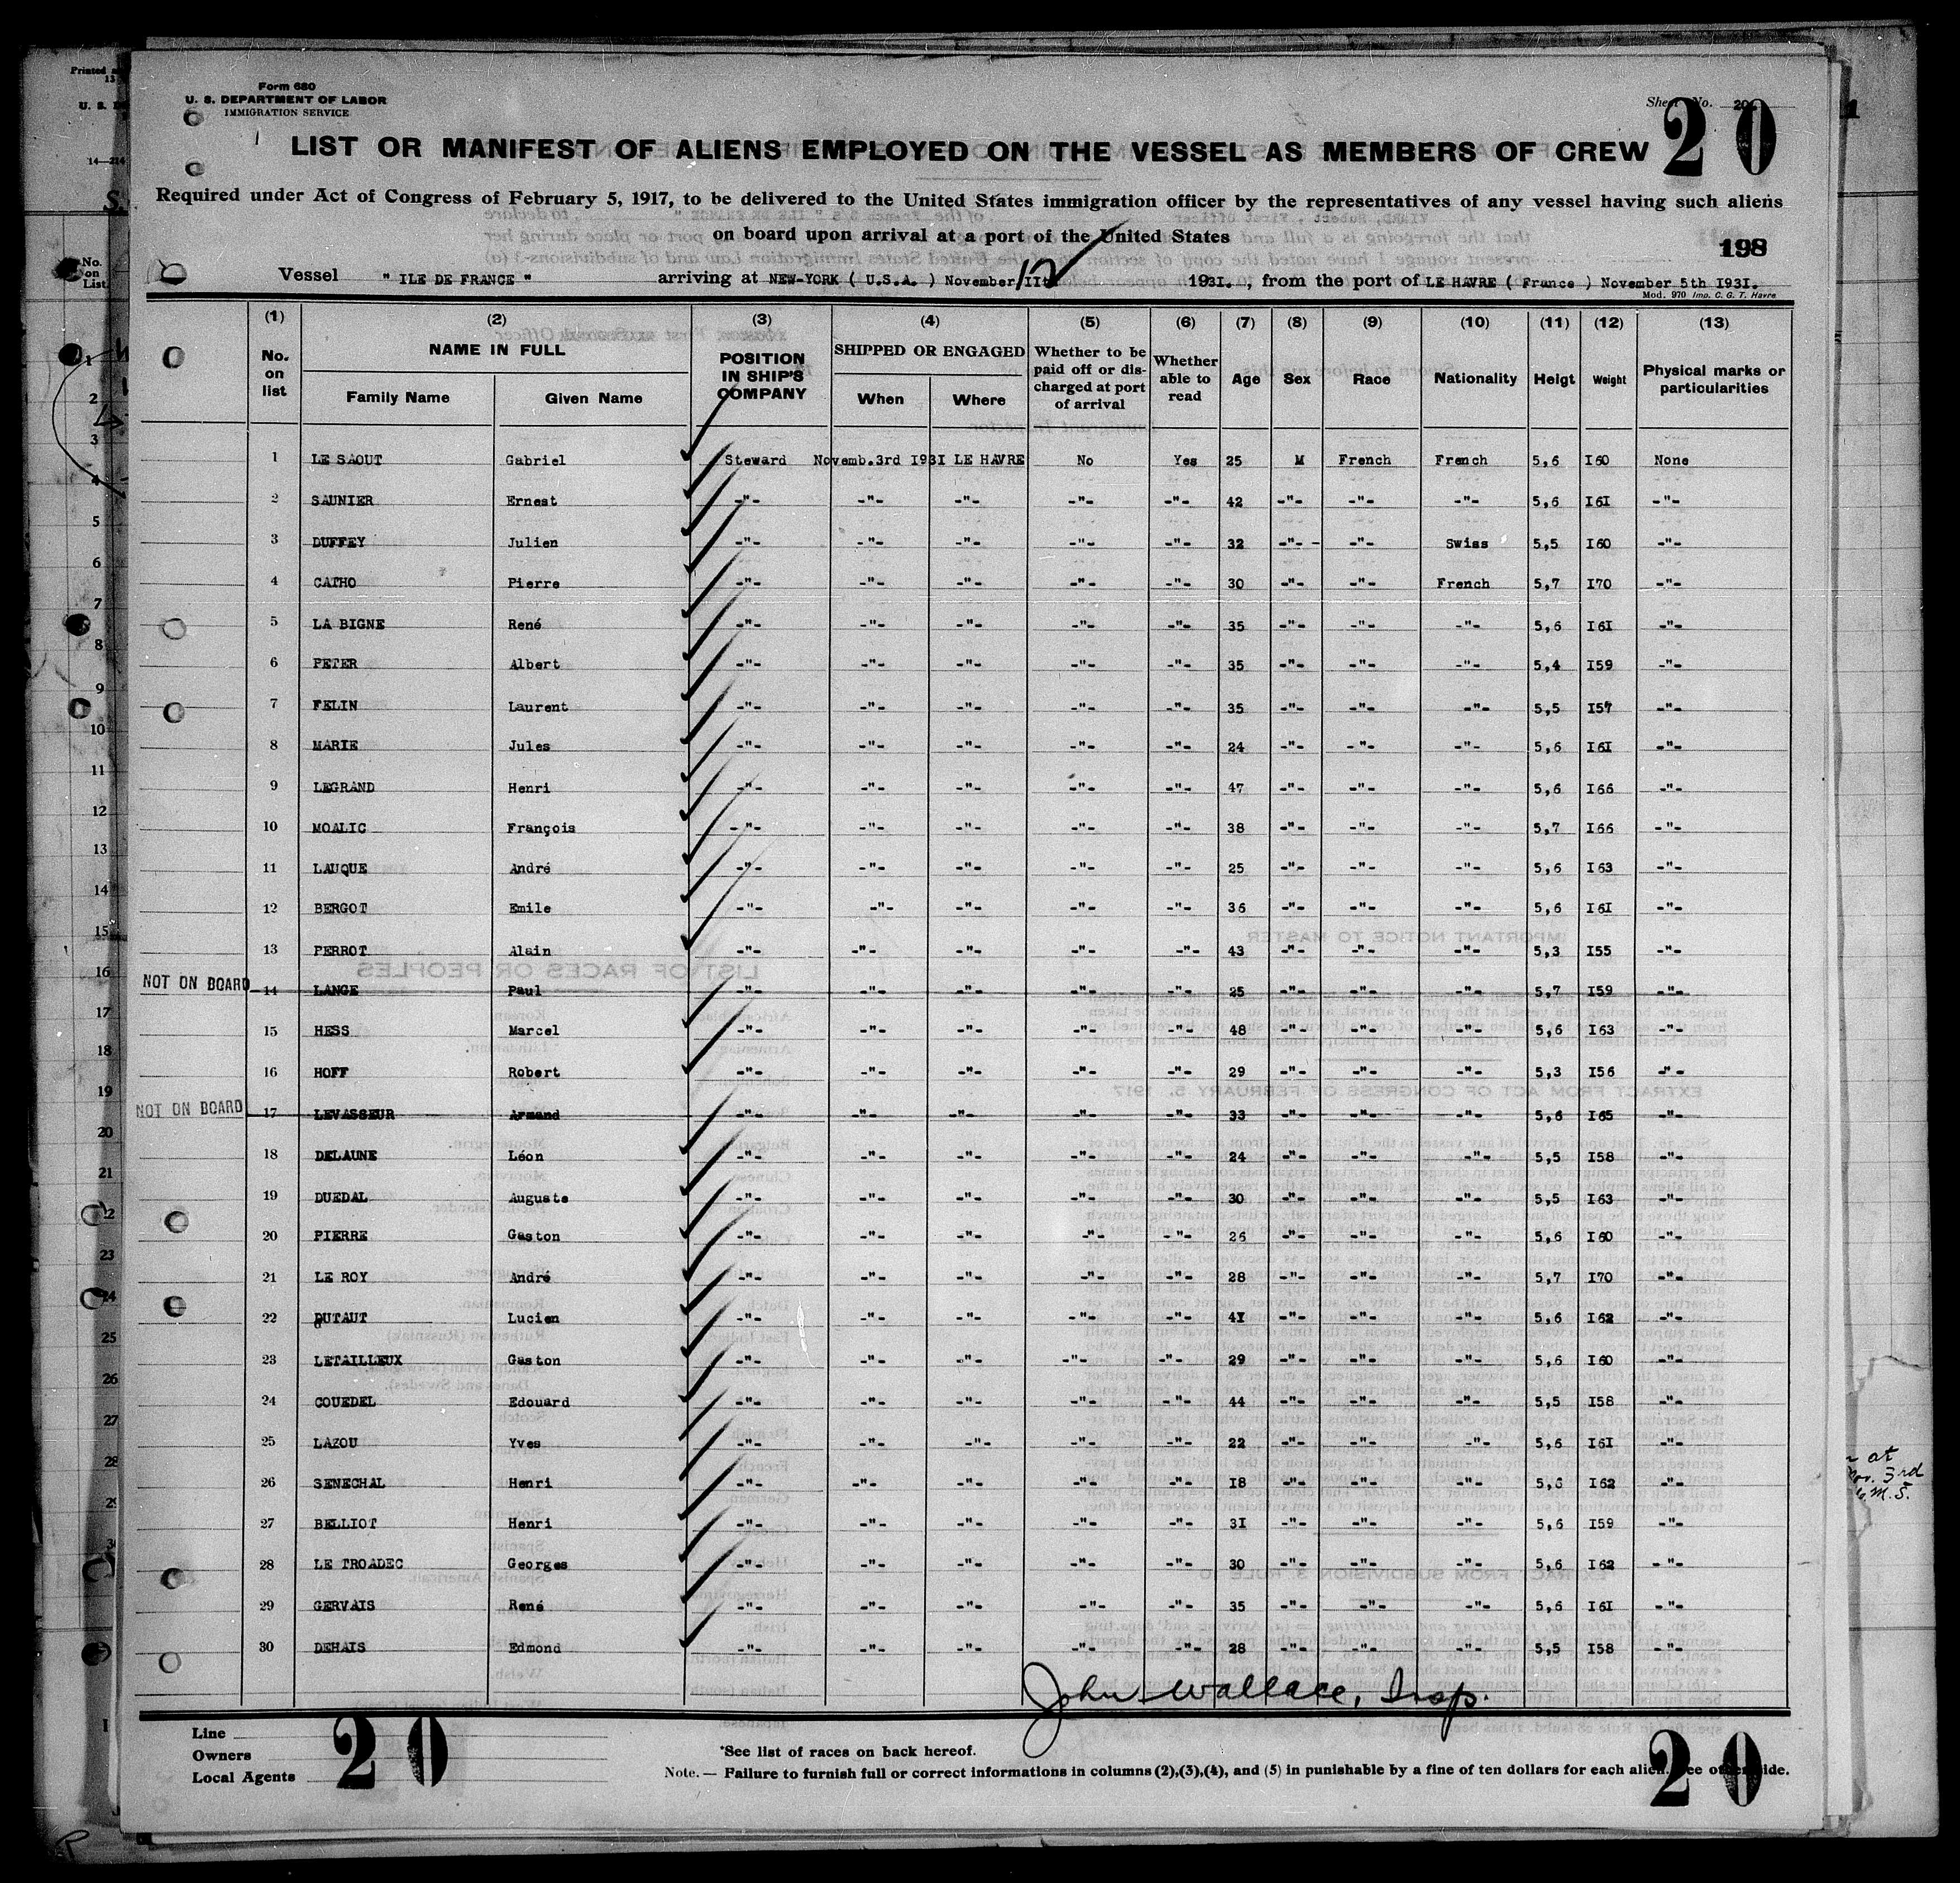 Form 680
U. S. DEPARTMENT OF LABOR
IMMIGRATION SERVICE
Sheet No. 20
20
LIST OR MANIFEST OF ALIENS EMPLOYED ON THE VESSEL AS MEMBERS OF CREW
Required under Act of Congress of February 5, 1917, to be delivered to the United States immigration officer by the representatives of any vessel having such aliens
on board upon arrival at a port of the United States
198
Vessel " ILE DE FRANCE " arriving at NEW-YORK ( U.S.A. ) November 12 193I. , from the port of LE HAVRE ( France ) November 5th I93I.
Mod. 970 Imp. C. G. T. Havre
(1) (2) (3) (4) (5) (6) (7) (8) (9) (10) (11) (12) (13)
No. on list NAME IN FULL Family Name Given Name POSITION IN SHIP'S COMPANY SHIPPED OR ENGAGED When Where Whether to be paid off or discharged at port of arrival Whether able to read Age Sex Race Nationality Heigt Weight Physical marks or particularities
1 LE SAOUT Gabriel Steward Novemb.3rd I93I LE HAVRE No Yes 25 M French French 5,6 I60 None
2 SAUNIER Ernest -"- -"- -"- -"- -"- 42 -"- -"- -"- 5,6 I6I -"-
3 DUFFEY Julien -"- -"- -"- -"- -"- 32 -"- - -"- Swiss 5,5 I60 -"-
4 CATHO Pierre -"- -"- -"- -"- -"- 30 -"- -"- French 5,7 I70 -"-
5 LA BIGNE René -"- -"- -"- -"- -"- 35 -"- -"- -"- 5,6 I6I -"-
6 PETER Albert -"- -"- -"- -"- -"- 35 -"- -"- -"- 5,4 I59 -"-
7 FELIN Laurent -"- -"- -"- -"- -"- 35 -"- -"- -"- 5,5 I57 -"-
8 MARIE Jules -"- -"- -"- -"- -"- 24 -"- -"- -"- 5,6 I6I -"-
9 LEGRAND Henri -"- -"- -"- -"- -"- 47 -"- -"- -"- 5,6 I66 -"-
10 MOALIC François -"- -"- -"- -"- -"- 38 -"- -"- -"- 5,7 I66 -"-
11 LAUQUE André -"- -"- -"- -"- -"- 25 -"- -"- -"- 5,6 I63 -"-
12 BERGOT Emile -"- -"- -"- -"- -"- 36 -"- -"- -"- 5,6 I6I -"-
13 PERROT Alain -"- -"- -"- -"- -"- 43 -"- -"- -"- 5,3 I55 -"-
NOT ON BOARD 14 LANGE Paul -"- -"- -"- -"- -"- 25 -"- -"- -"- 5,7 I59 -"-
15 HESS Marcel -"- -"- -"- -"- -"- 48 -"- -"- -"- 5,6 I63 -"-
16 HOFF Robert -"- -"- -"- -"- -"- 29 -"- -"- -"- 5,3 I56 -"-
NOT ON BOARD 17 LEVASSEUR Armand -"- -"- -"- -"- -"- 33 -"- -"- -"- 5,6 I65 -"-
18 DELAUNE Léon -"- -"- -"- -"- -"- 24 -"- -"- -"- 5,5 I58 -"-
19 DUEDAL Auguste -"- -"- -"- -"- -"- 30 -"- -"- -"- 5,5 I63 -"-
20 PIERRE Gaston -"- -"- -"- -"- -"- 26 -"- -"- -"- 5,6 I60 -"-
21 LE ROY André -"- -"- -"- -"- -"- 28 -"- -"- -"- 5,7 I70 -"-
22 DUTAUT Lucien -"- -"- -"- -"- -"- 4I -"- -"- -"- 5,6 I62 -"-
23 LETAILLEUX Gaston -"- -"- -"- -"- -"- 29 -"- -"- -"- 5,6 I60 -"-
24 COUEDEL Edouard -"- -"- -"- -"- -"- 44 -"- -"- -"- 5,5 I58 -"-
25 LAZOU Yves -"- -"- -"- -"- -"- 22 -"- -"- -"- 5,6 I6I -"-
26 SENECHAL Henri -"- -"- -"- -"- -"- I8 -"- -"- -"- 5,6 I62 -"-
27 BELLIOT Henri -"- -"- -"- -"- -"- 3I -"- -"- -"- 5,6 I59 -"-
28 LE TROADEC Georges -"- -"- -"- -"- -"- 30 -"- -"- -"- 5,6 I62 -"-
29 GERVAIS René -"- -"- -"- -"- -"- 35 -"- -"- -"- 5,6 I6I -"-
30 DEHAIS Edmond -"- -"- -"- -"- -"- 28 -"- -"- -"- 5,5 I58 -"-
John Wallace, Insp.
Line
Owners
Local Agents
20
*See list of races on back hereof.
Note.— Failure to furnish full or correct informations in columns (2),(3),(4), and (5) in punishable by a fine of ten dollars for each alien. See other side.
20